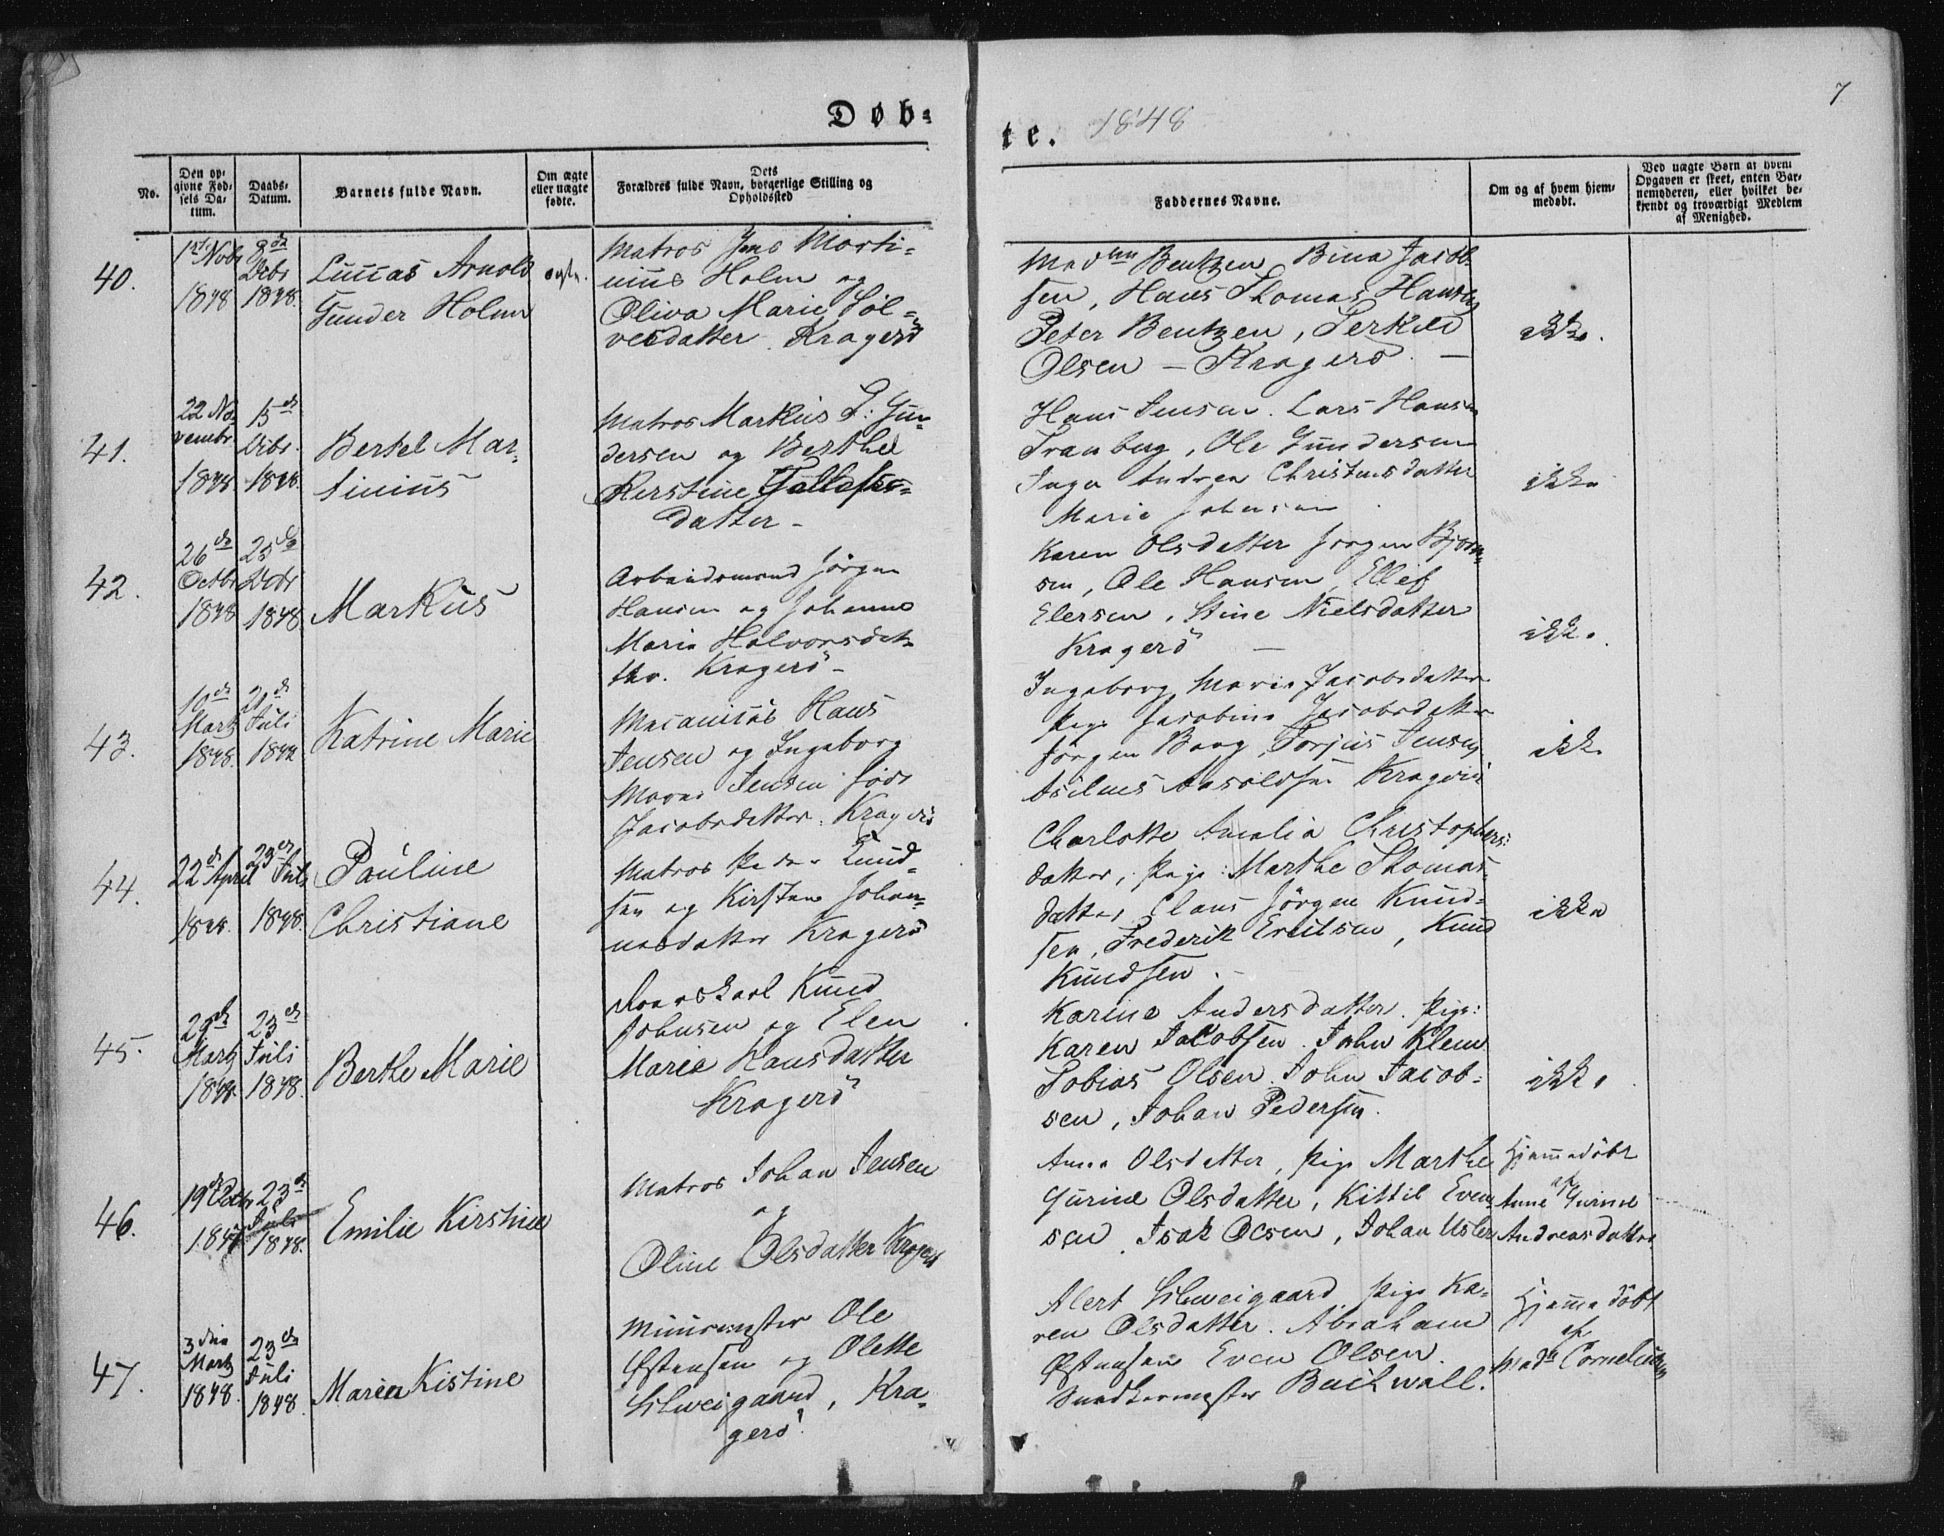 Døb=
te. 1848
7
No.
Den op=
givne Fød=
sels Da=
tum.
Daabs=
Datum.
Barnets fulde Navn.
Om ægte
eller uægte
fødte.
Dets
Forældres fulde Navn, borgerlige Stilling og
Opholdssted
Faddernes Navne.
Om og af hvem hjem=
medøbt.
Ved uægte Børn af hvem
Opgaven er skeet, enten Bar=
nemoderen, eller hvilket be=
kjendt og troværdigt Medlem
af Menighed.
40.
1st Nobr
1848
3die
Debr
1848.
Luccas Arnold
Gunder Holm
ægte.
Matros Jens Morti=
nius Holm og
Oliva Marie Søl=
vesdatter. Kragerö
Bentzen Bina Jacob-
sen, Hans Thomas Hansen
Peter Bentzen, Terkild
Olsen — Kragerö. —
ikke.
41.
22 No-
vembr
1848
15de
Debr.
1848.
Bertel Mar-
tinius
Matros Markus T: Gun-
dersen og Berthe
Kerstine Tellefs=
datter -
Hans Jensen. Lars Hansen
Tranberg, Ole Gundersen
Inger Andrea Christensdatter
Marie Johnsen
ikke
42.
26de
Octbr
1848
25de
Debr
1848.
Markus
Arbeidsmand Jörgen
Hansen og Johanne
Marie Halvorsdat-
ter. Kragerö -
Karen Olsdatter Jörgen Björn-
sen, Ole Hansen, Ellef
Elersen, Stine Nielsdatter
Kragerö —
ikke.
43.
10de
Marts
1848.
21de
Juli
1848
Katrine Marie
Mecanicus Hans
Jensen og Ingeborg
Maria Jensen föd
Jacobsdatter. Kragerö
Ingeborg Marie Jacobsdatter
Pige Jacobine Jacobsdatter
Jörgen Borg, Torjus Jensen
Kragerö
ikke
44.
22de April
1848.
23de Juli
1848.
Pauline
Christiane
Matros Peder Knud-
sen og Kirsten Johan-
nesdatter Kragerö
Charlotte Amalia Christophers:
datter, Pige: Marthe Thomas-
datter, Claus Jörgen Knud-
sen, Frederik Ericksen, Knud
Knudsen. -
ikke
45.
29de
Marts
1848.
23de
Juli
1848.
Berthe Marie
Knud
Johnsen og Elen
Marie Hansdatter
Kragerö
Karine Andersdatter. Pige:
Karen Jacobsen. John Klem
Tobias Olsen. John Jacob-
sen, Johan Pedersen.
ikke.
46.
19de Octbr
1847
23de
Juli
1848.
Emilie Kirstine
Matros Johan Jensen
og
Oline Olsdatter Kragerö
Anna Olsdatter, Pige Marthe
Gurine Olsdatter, Kittil Even-
sen, Isak Olsen, Johan
Hjemmedöbt
af
Anne Gurine
Andreasdatter
47.
3die
Marts
1848.
23de
Juli
1848.
Maria Kistine
Muurmester Ole
Østensen og Olette
Schweigaard, Kra-
gerö
Alert Schweigaard, Pige Ka-
ren Olsdatter. Abraham
Østensen Even Olsen.
Snedkermester Buchwall.
Hjemmedöbt
af